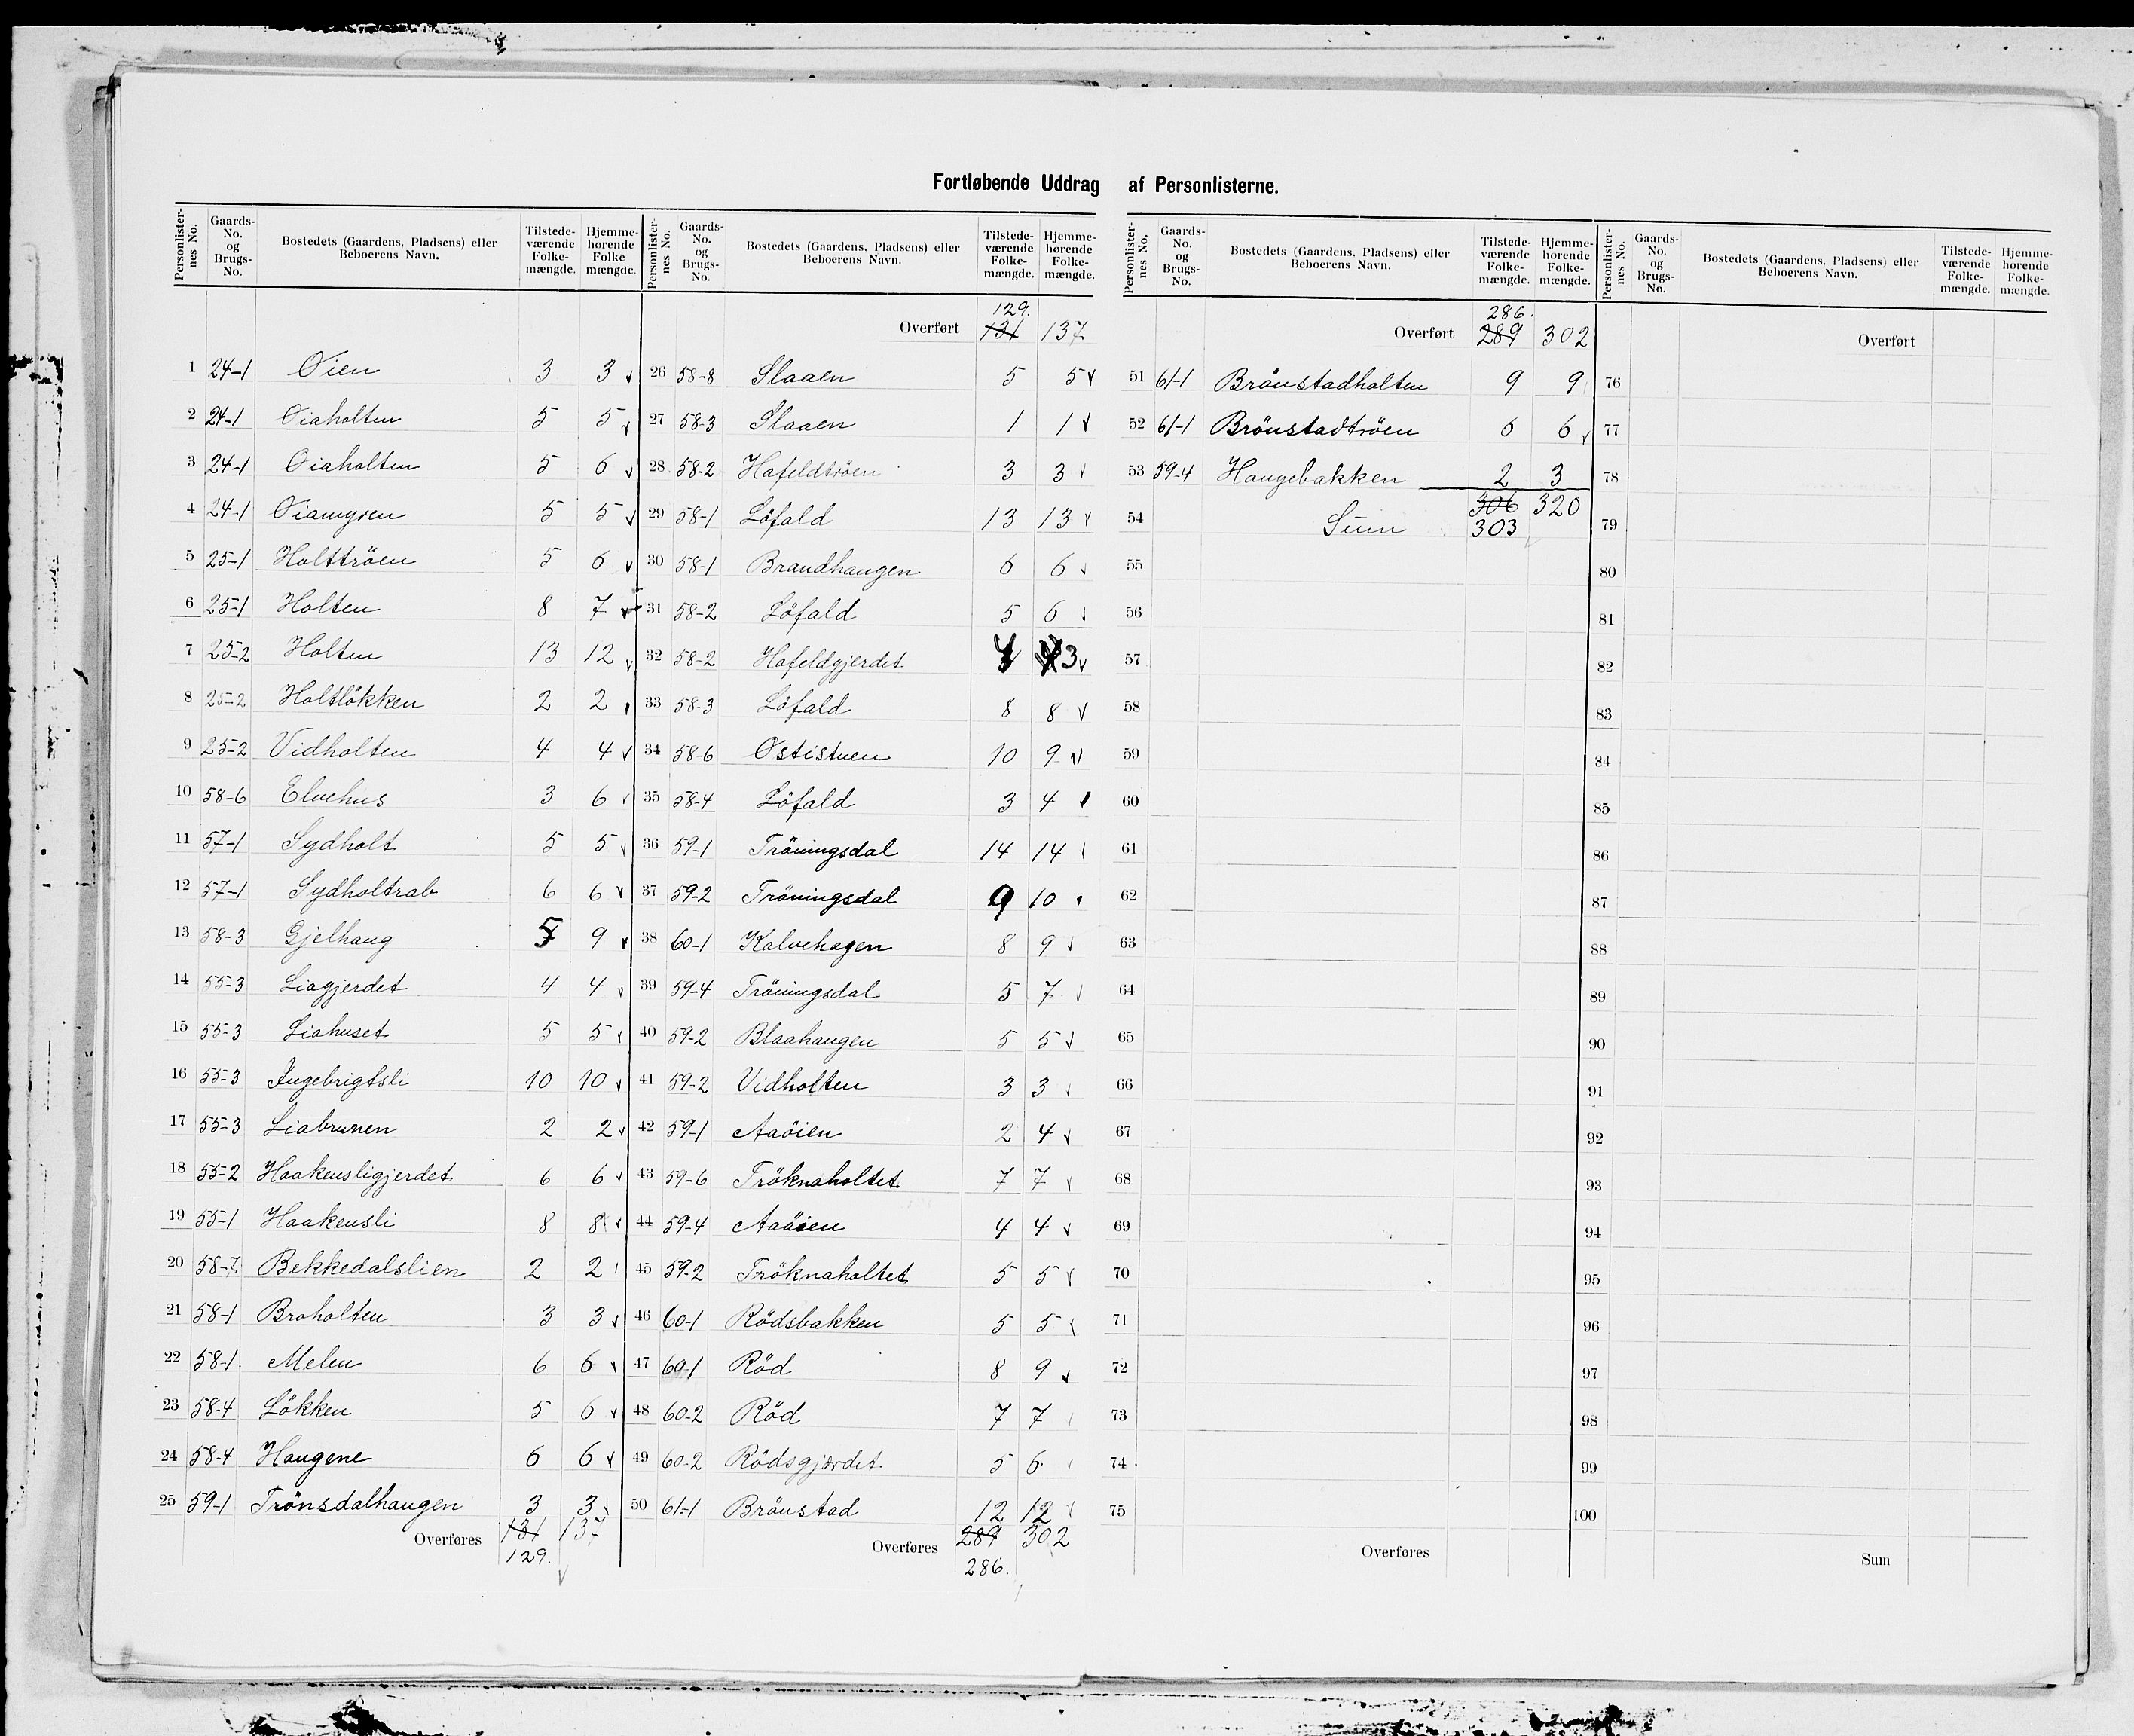 Fortløbende Uddrag af Personlisterne.
Personlisternes No. | Gaards-No. og Brugs-No. | Bostedets (Gaardens, Pladsens) eller Beboerens Navn. | Tilstedeværende Folkemængde. | Hjemmehørende Folkemængde.
1 24-1 Øien 3 3
2 24-1 Øiaholten 5 5
3 24-1 Øiaholten 5 6
4 24-1 Øiamyren 5 5
5 25-1 Holttröen 5 6
6 25-1 Holten 8 7
7 25-2 Holten 13 12
8 25-2 Holtlökken 2 2
9 25-2 Vidholten 4 4
10 58-6 Elvehus 3 6
11 57-1 Sydholt 5 5
12 57-1 Sydholtrab 6 6
13 58-3 Gjelhaug 5 9
14 55-3 Liagjerdet 4 4
15 55-3 Liahuset 5 5
16 55-3 Ingebrigtsli 10 10
17 55-3 Liabrunen 2 2
18 55-2 Haakensligjerdet 6 6
19 55-1 Haakensli 8 8
20 58-7 Bekkedalslien 2 2
21 58-1 Broholten 3 3
22 58-1. Melen 6 6
23 58-4 Lökken 5 6
24 58-4 Haugene 6 6
25 59-1 Trönsdalhaugen 3 3
Overføres 131 137
129.
Personlisternes No. | Gaards-No. og Brugs-No. | Bostedets (Gaardens, Pladsens) eller Beboerens Navn. | Tilstedeværende Folkemængde. | Hjemmehørende Folkemængde.
129.
Overført 131 137
26 58-8 Slaaen 5 5
27 58-3 Slaaen 1 1
28 58-2 Hafeldtröen 3 3
29 58-1 Löfald 13 13
30 58-1 Brandhaugen 6 6
31 58-2 Löfald 5 6
32 58-2 Hafeldgjerdet 3
33 58-3 Löfald 8 8
34 58-6 Østistuen 10 9
35 58-4 Löfald 3 4
36 59-1 Tröningsdal 14 14
37 59-2 Tröningsdal 9 10
38 60-1 Kalvehagen 8 9
39 59-4 Tröningsdal 5 7
40 59-2 Blaahaugen 5 5
41 59-2 Vidholten 3 3
42 59-1 Aaöien 2 4
43 59-6 Tröknaholtet 7 7
44 59-4 Aaöien 4 4
45 59-2 Tröknaholtet 5 5
46 60-1 Rödsbakken 5 5
47 60-1 Röd 8 9
48 60-2 Röd 7 7
49 60-2 Rödsgjerdet 5 6
50 61-1 Brönstad 12 12
Overføres 289 302
286.
Personlisternes No. | Gaards-No. og Brugs-No. | Bostedets (Gaardens, Pladsens) eller Beboerens Navn. | Tilstedeværende Folkemængde. | Hjemmehørende Folkemængde.
286.
Overført 289 302
51 61-1 Brönstadholten 9 9
52 61-1 Brönstadtröen 6 6
53 59-4 Haugebakken 2 3
306 320
54 Sum 303
55
56
57
58
59
60
61
62
63
64
65
66
67
68
69
70
71
72
73
74
75
Overføres
Personlisternes No. | Gaards-No. og Brugs-No. | Bostedets (Gaardens, Pladsens) eller Beboerens Navn. | Tilstedeværende Folkemængde. | Hjemmehørende Folkemængde.
Overført
76
77
78
79
80
81
82
83
84
85
86
87
88
89
90
91
92
93
94
95
96
97
98
99
100
Sum